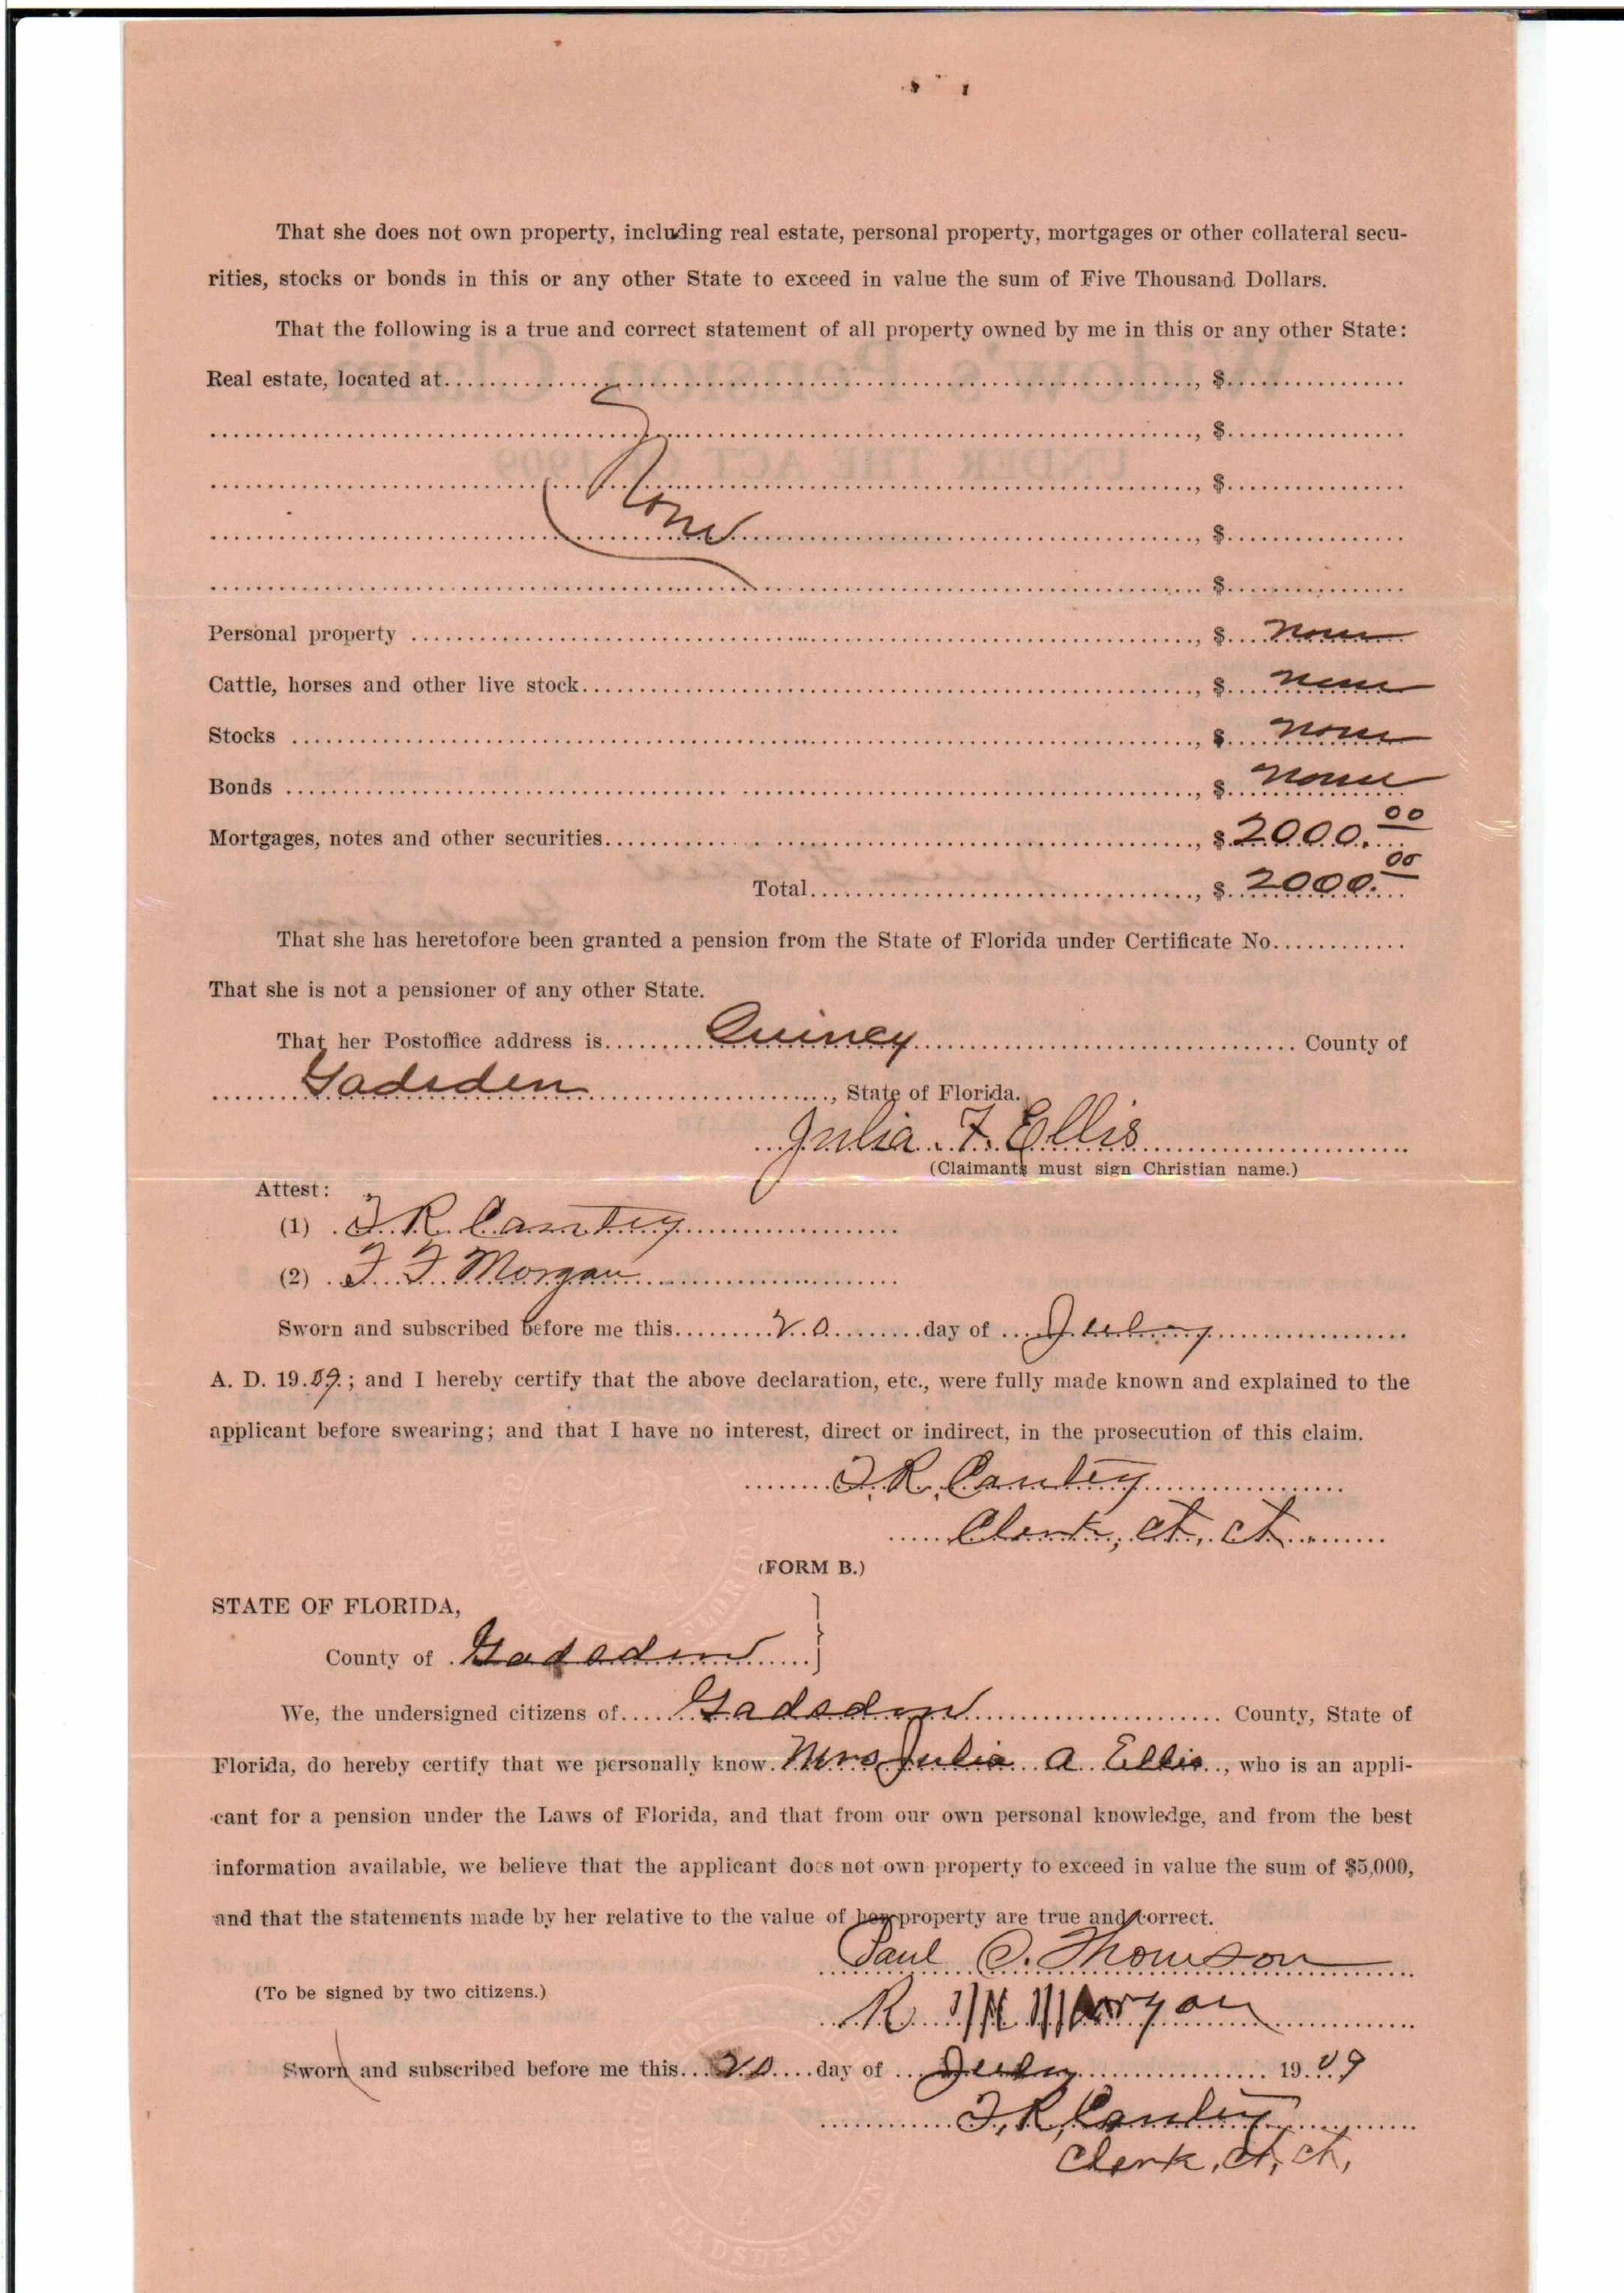 That she does not own property, including real estate, personal property, mortgages or other collateral secu-
rities, stocks or bonds in this or any other State to exceed in value the sum of Five Thousand Dollars.
That the following is a true and correct statement of all property owned by me in this or any other State:
Real estate, located at........, $........
........, $........
........, $........
None
........, $........
........ $........
Personal property ........, $.... none
Cattle, horses and other live stock........, $.... none
Stocks ........, $.... none
Bonds ........, $.... none
Mortgages, notes and other securities........, $ 2000.00
Total........, $ 2000.00
That she has heretofore been granted a pension from the State of Florida under Certificate No............
That she is not a pensioner of any other State.
That her Postoffice address is........ Quincy ........ County of
........ Gadsden ........, State of Florida.
Julia F. Ellis
(Claimants must sign Christian name.)
Attest:
(1) J. R. Cantey
(2) F. F. Morgan
Sworn and subscribed before me this........ 20 ........day of .... July ........
A. D. 19.09.; and I hereby certify that the above declaration, etc., were fully made known and explained to the
applicant before swearing; and that I have no interest, direct or indirect, in the prosecution of this claim.
J. R. Cantey
Clerk, Ct. Ct.
(FORM B.)
STATE OF FLORIDA,
County of Gadsden
We, the undersigned citizens of.... Gadsden ........ County, State of
Florida, do hereby certify that we personally know. Mrs Julia A Ellis .., who is an appli-
cant for a pension under the Laws of Florida, and that from our own personal knowledge, and from the best
information available, we believe that the applicant does not own property to exceed in value the sum of $5,000,
and that the statements made by her relative to the value of her property are true and correct.
Paul C. Thomson
(To be signed by two citizens.)
R. Morgan
Sworn and subscribed before me this... 20 ....day of ... July ........ 19.09
J. R. Cantey
Clerk, Ct, Ct,
GADSDEN COUNTY